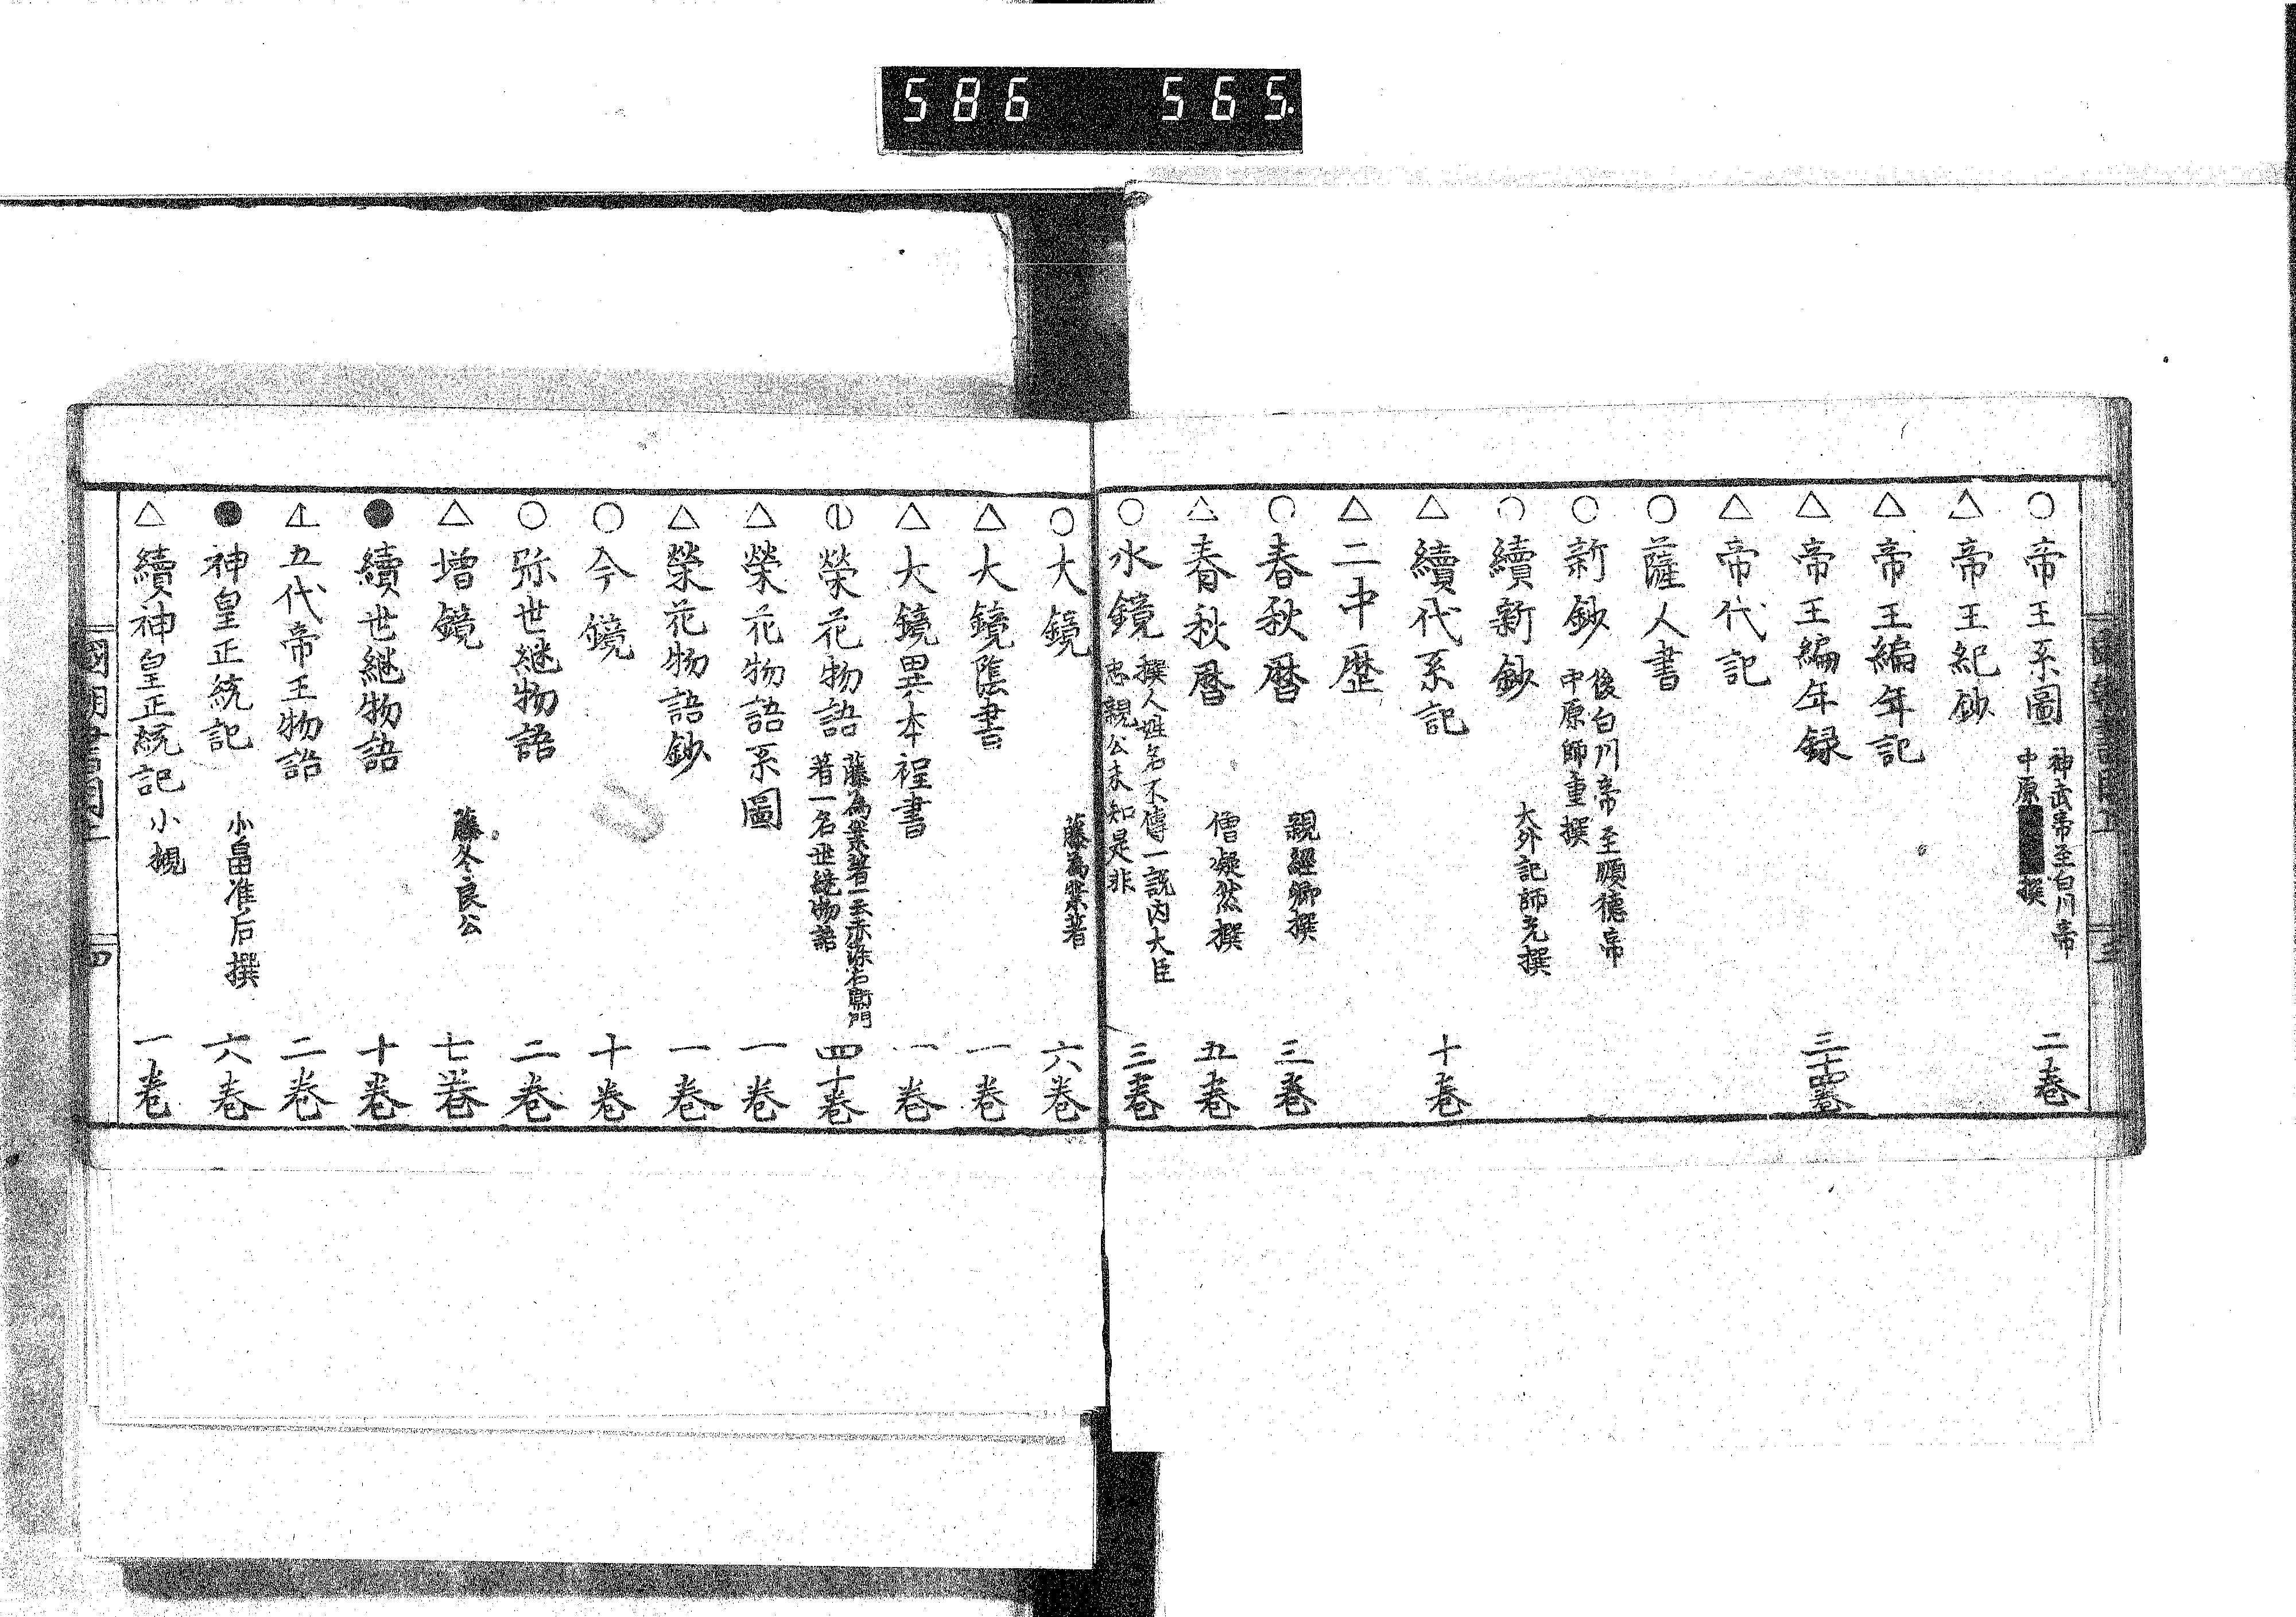 586 565.
○帝王系圖 神武帝至白川帝
中原 撰 二卷
△帝王紀鈔
△帝王編年記
△帝王編年録 三十四卷
△帝代記
○薩人書
○新鈔 後白川帝至順徳帝
中原師重撰
○續新鈔 大外記師光撰
△續代系記 十卷
△二中歷
○春秋暦 親經卿撰 三卷
△春秋暦 僧凝然撰 五卷
○水鏡 撰人姓名不傳一説内大臣
忠親公未知是非 三卷
三
○大鏡 藤為業著 六卷
△大鏡陰書 一卷
△大鏡異本裎書 一卷
榮花物語 藤為業著一云赤染右衛門
著一名世継物語 四十卷
△榮花物語系圖 一卷
△榮花物語鈔 一卷
○今鏡 十卷
○弥世継物語 二卷
△增鏡 藤冬良公 七卷
●續世継物語 十卷
△五代帝王物語 二卷
●神皇正統記 小畠准后撰 六卷
△續神皇正統記 小槻 一卷
四